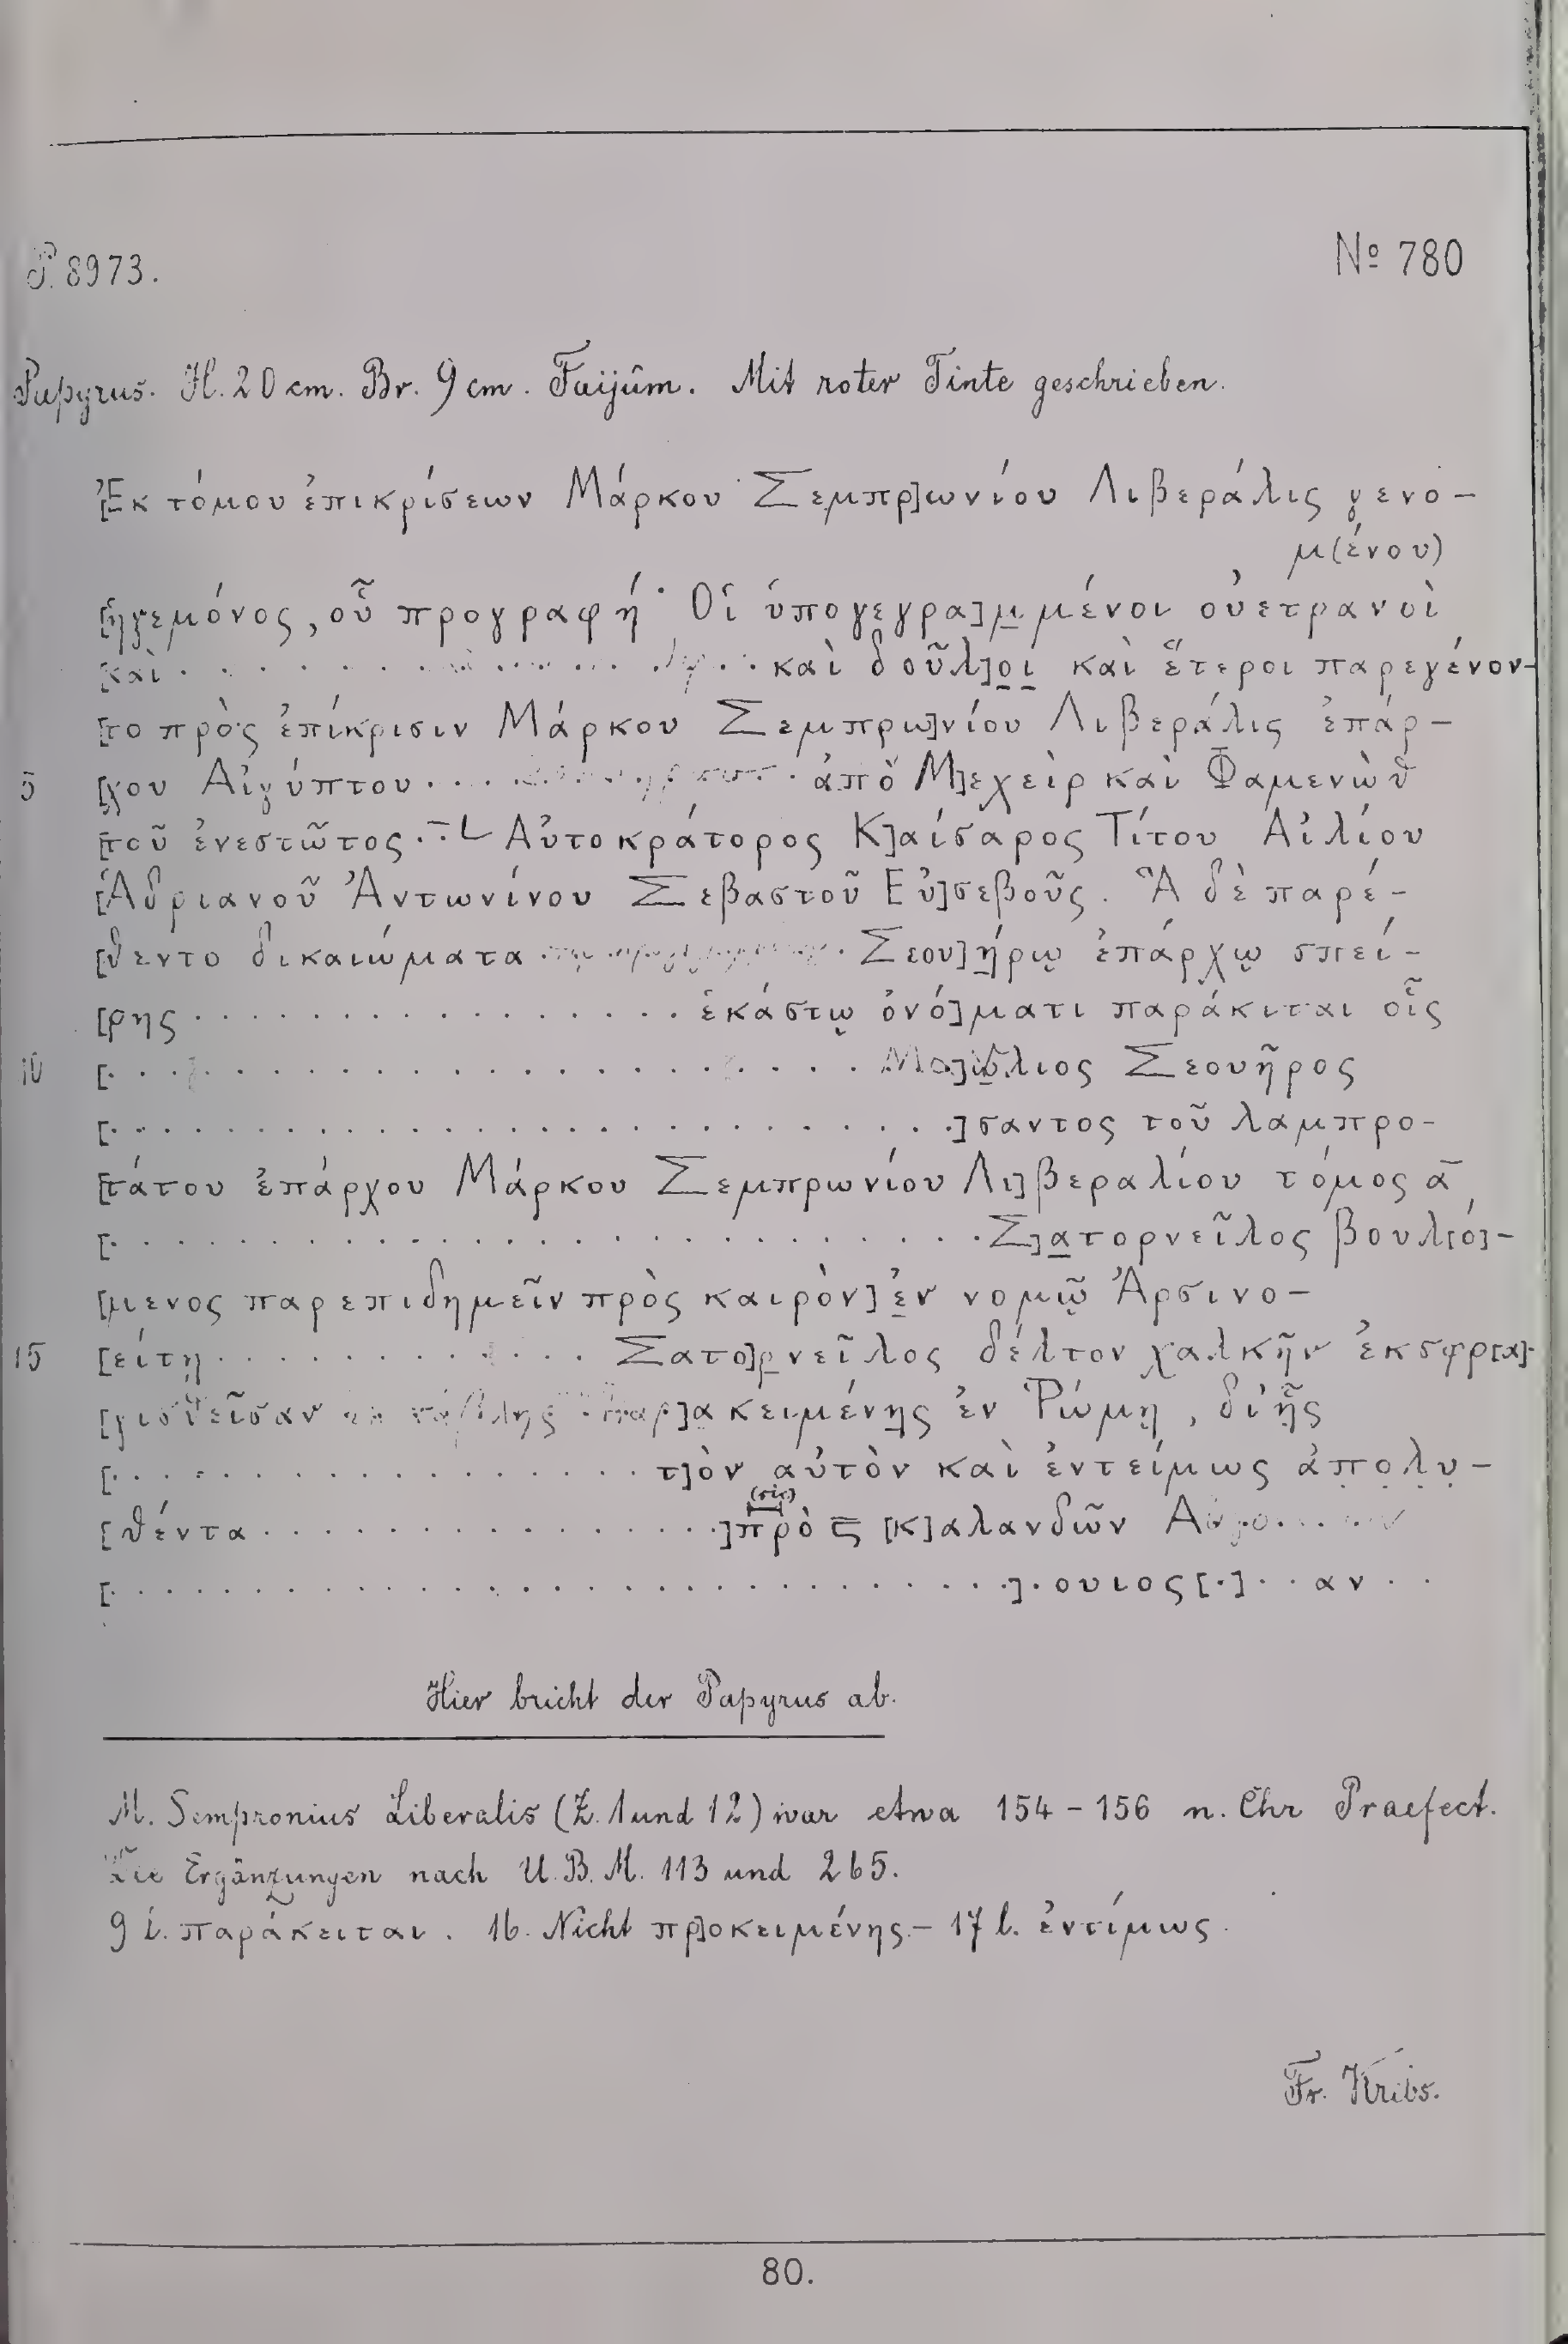 P. 8973.
Nº 780
Papyrus. H. 20 cm. Br. 9 cm. Faijûm. Mit roter Tinte geschrieben.
[Ἐκ τόμου ἐπικρίσεων Μάρκου Σεμπρ]ωνίου Λιβεράλις γενο-
μ(ένου)
[ἡγεμόνος, οὗ προγραφή· Οἱ ὑπογεγρα]μμένοι οὐετρανοὶ
[καὶ . . . . . . . . . . . . και δοῦλ]οι καὶ ἕτεροι παρεγένον-
[το πρὸς ἐπίκρισιν Μάρκου Σεμπρω]νίου Λιβεράλις ἐπάρ-
5 [χου Αἰγύπτου . . . . . . . . . . . ἀπὸ Μ]εχεὶρ καὶ Φαμενὼθ
[τοῦ ἐνεστῶτος . . L Αὐτοκράτορος Κ]αίσαρος Τίτου Αἰλίου
[Ἁδριανοῦ Ἀντωνίνου Σεβαστοῦ Εὐ]σεβοῦς. Ἃ δὲ παρέ-
[θεντο δικαιώματα . . . . . . . Σεου]ήρῳ ἐπάρχῳ σπεί-
[ρης . . . . . . . . . . . . . . . . . ἑκάστῳ ὀνό]ματι παράκιται οἷς
10 [. . . . . . . . . . . . . . . . . . . . ]λιος Σεουῆρος
[. . . . . . . . . . . . . . . . . . . . . . . . . .]σαντος τοῦ λαμπρο-
[τάτου ἐπάρχου Μάρκου Σεμπρωνίου Λι]βεραλίου τόμος ᾱ
[. . . . . . . . . . . . . . . . . . . . . . . . . . Σ]ατορνεῖλος βουλ[ό]-
[μενος παρεπιδημεῖν πρὸς καιρὸν] ἐν νομῷ Ἀρσινο-
15 [είτῃ . . . . . . . . . . . . . Σατο]ρνεῖλος δέλτον χαλκῆν ἐκσφρ[α]-
[γισθεῖσαν ἐκ τάβλης παρ]ακειμένης ἐν Ῥώμῃ, δι' ἧς
[. . . . . . . . . . . . . . . . . . . τ]ὸν αὐτὸν καὶ ἐντείμως ἀπολυ-
(sic)
[θέντα . . . . . . . . . . . . . . . .]πρὸ ϛ [κ]αλανδῶν
[. . . . . . . . . . . . . . . . . . . . . . . . . . .] . ουιος [.] . . αν . .
Hier bricht der Papyrus ab.
M. Sempronius Liberalis (Z. 1 und 12) war etwa 154 - 156 n. Chr Praefect.
Die Ergänzungen nach U. B. M. 113 und 265.
9 l. παράκειται. 16. Nicht πρ]οκειμένης. - 17 l. ἐντίμως.
Fr. Krebs.
80.